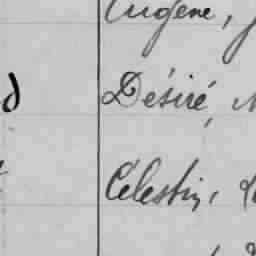 Eugène,
d Désiré,
Célestin,